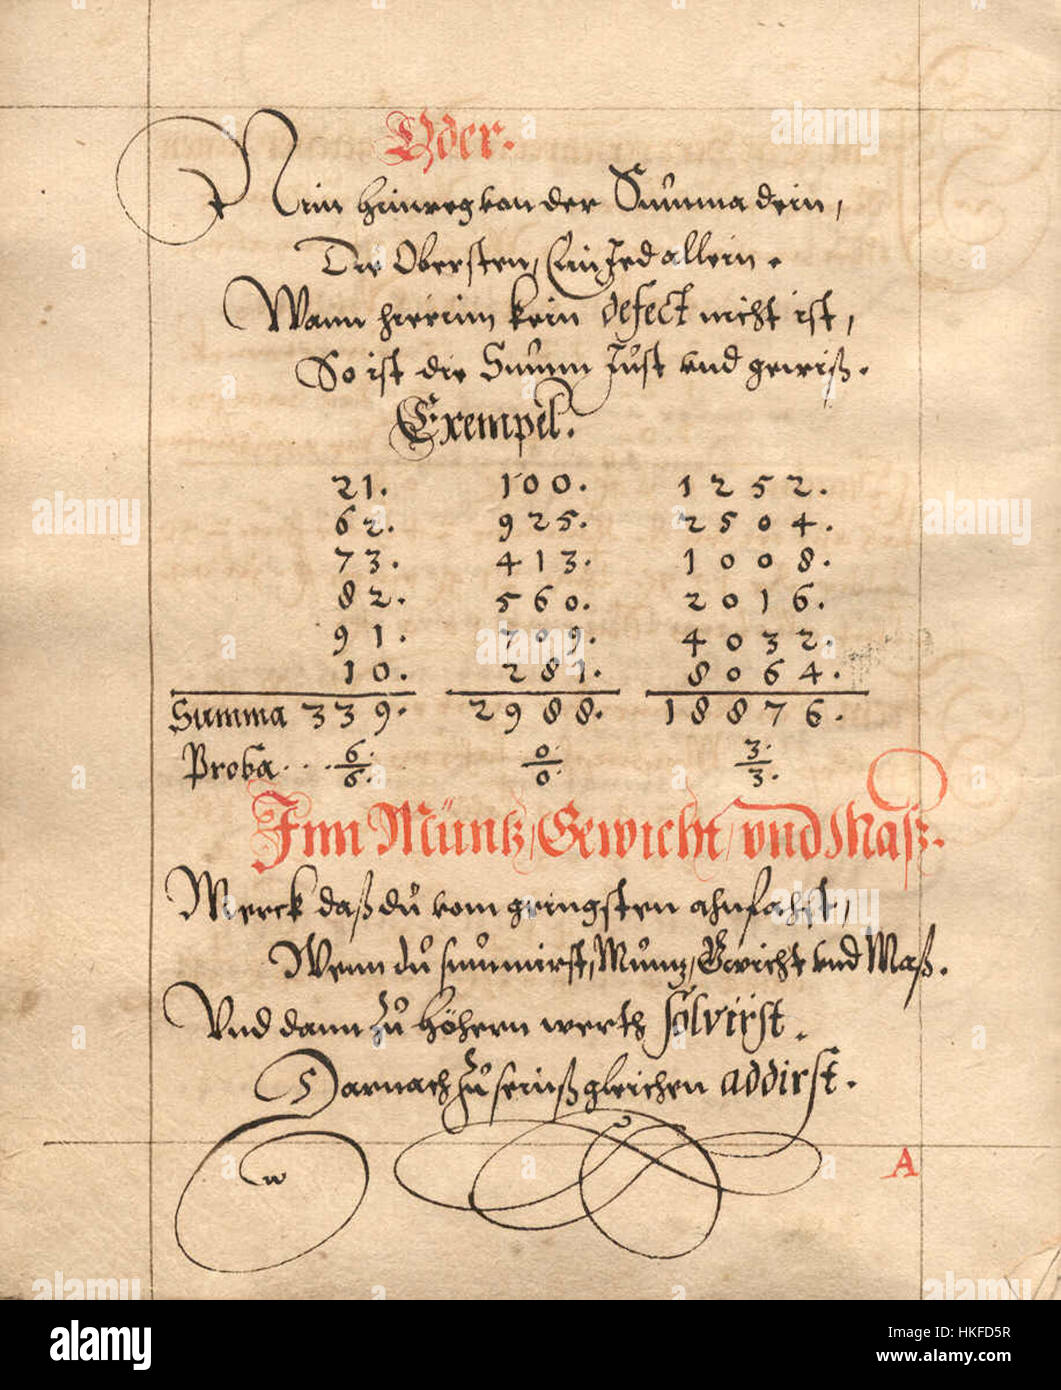 Oder.
Nim hinweg von der Summa dein,
Die Obersten, Ein Jed allein.
Wann hierinn kein defect nicht ist,
So ist die Summ Just vnd gewiß.
Exempel.
21. 100. 1252.
62. 925. 2504.
73. 413. 1008.
82. 560. 2016.
91. 709. 4032.
10. 281. 8064.
Summa 339. 2988. 18876.
Proba... 6./6. 0./0. 3./3.
Inn Müntz, Gewicht, vnd Maß.
Merck daß du vom geringsten ahnfahst,
Wenn du summirst, Muntz, Gwicht vnd Maß.
Vnd dann zu höhern werth solvirst.
Darnach zu seinßgleichen addirst.
A
alamy
Image ID: HKFD5R
www.alamy.com